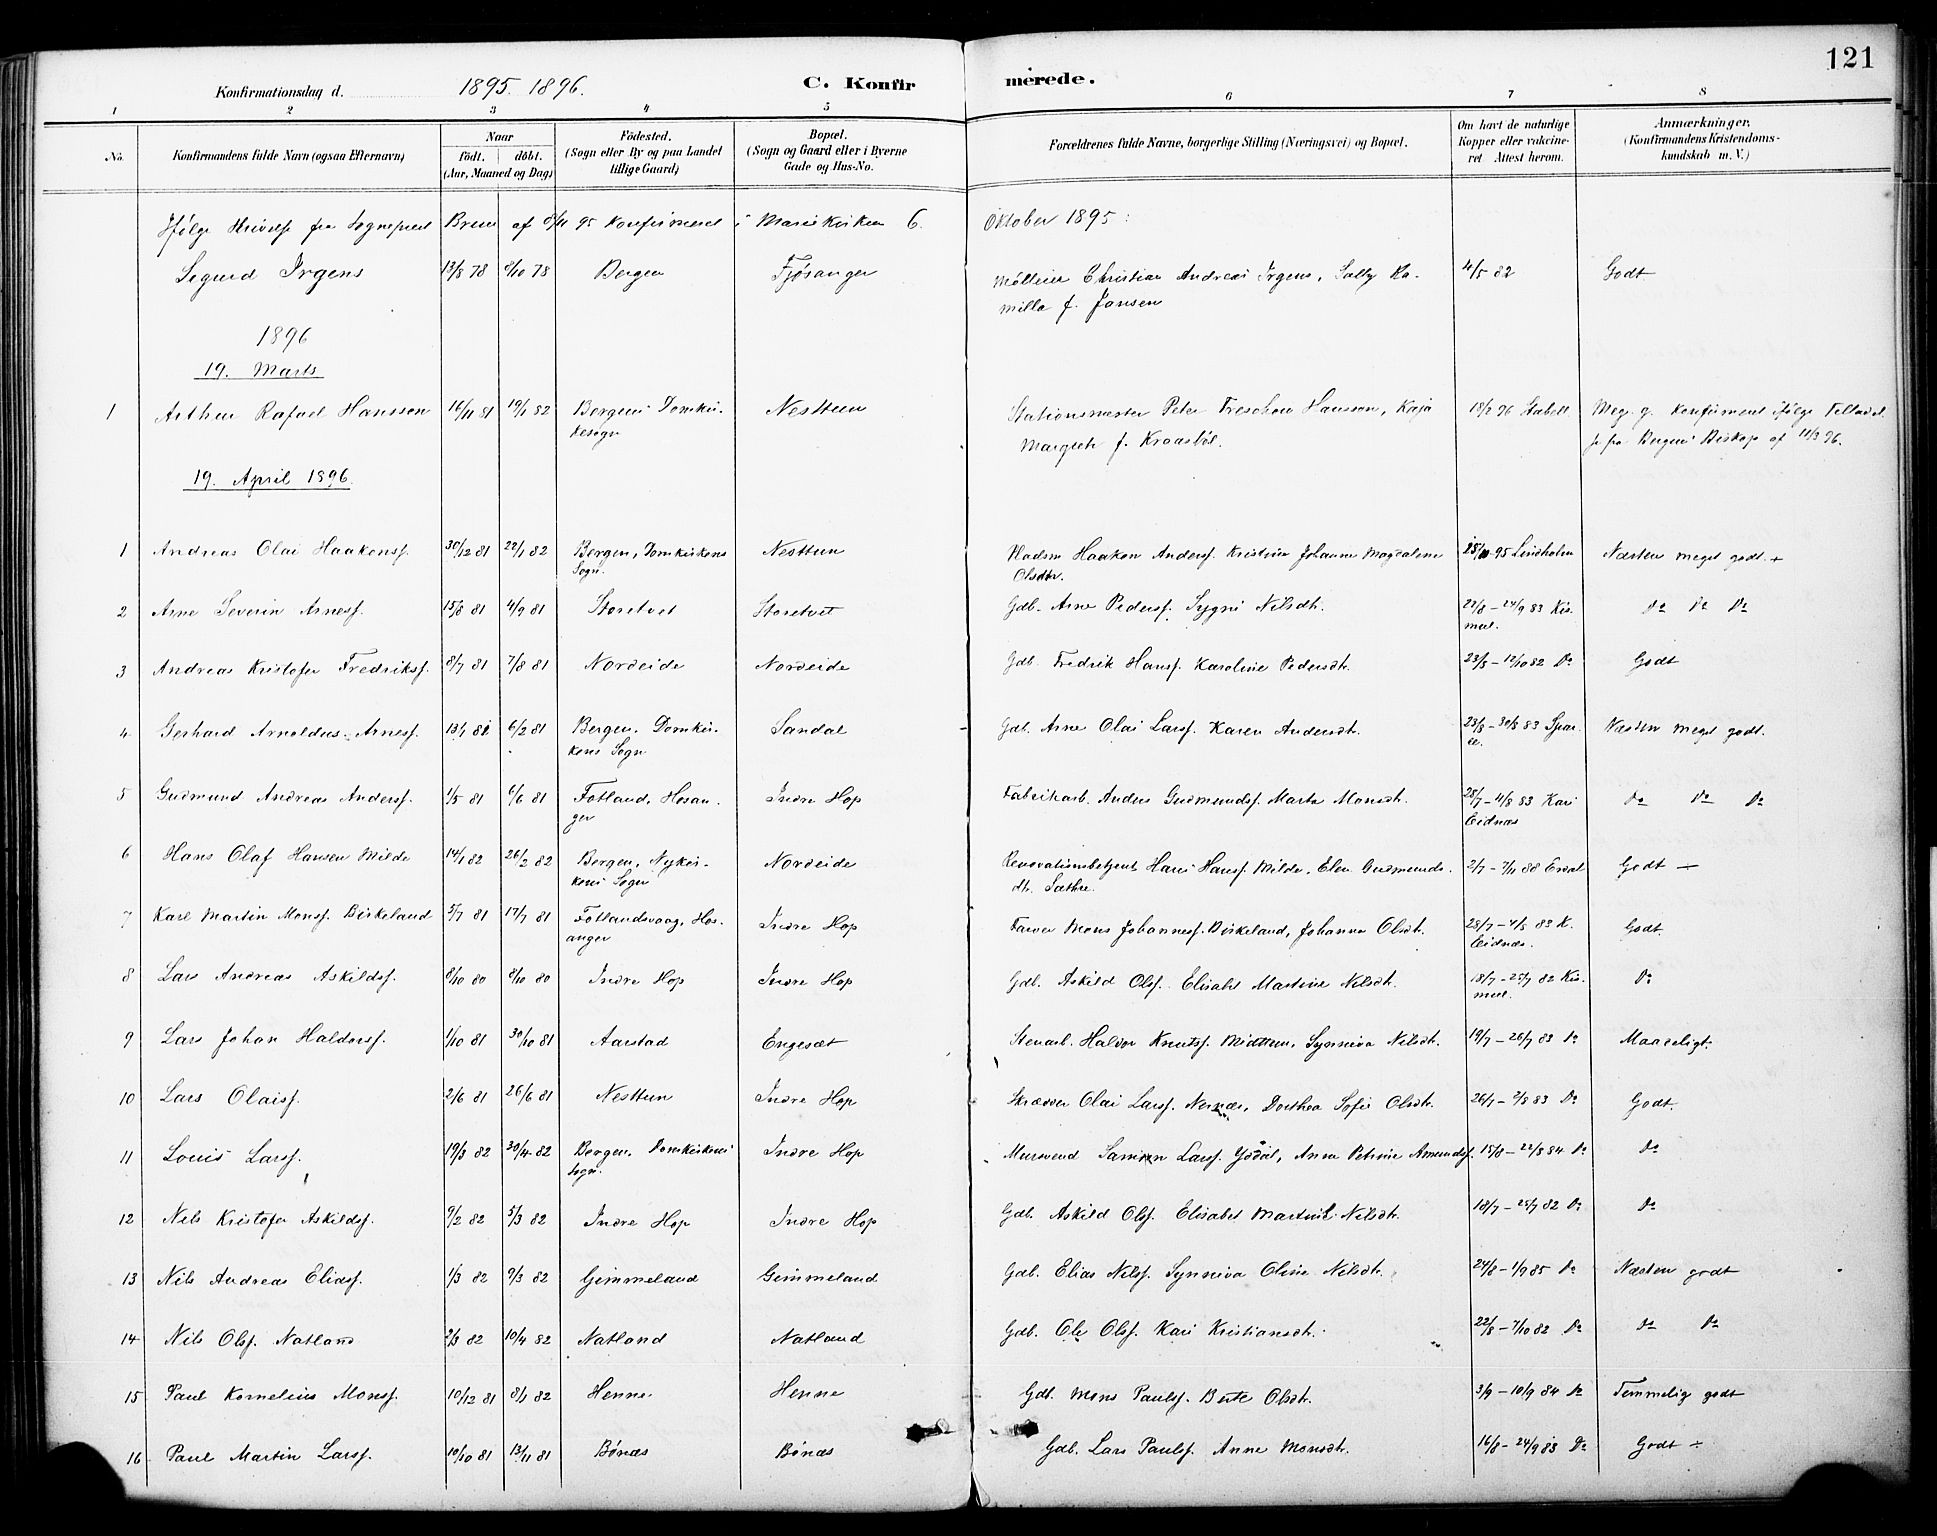 121
Konfirmationsdag d. 1895. 1896. C. Konfirmerede.
1 2 3 4 5 6 7 8
No. Konfirmandens fulde Navn (ogsaa Efternavn) Naar født. døbt. (Aar, Maaned og Dag) Fødested. (Sogn eller By og paa Landet tillige Gaard) Bopæl. (Sogn og Gaard eller i Byerne Gade og Hus-No. Forældrenes fulde Navne, borgerlige Stilling (Næringsvei) og Bopæl. Om havt de naturlige Kopper eller vakcineret. Attest herom. Anmærkninger. (Konfirmandens Kristendomskundskab m. V.)
Ifølge Skrivelse fra Sognepræst Brun af 8/11 95 Konfirmeret i Mariekirken 6. Oktober 1895:
Sigurd Irgens 13/8 78 8/10 78 Bergen Fjøsanger Møbleier Christian Andreas Irgens, Sally Ka- 4/5 82 Godt
milla f. Jansen
1896
19. Marts
1 Arthur Rafael Hansson 16/11 81 19/1 82 Bergens Domkir- Nesttun Stationsmester Peter Treschow Hanson, Kaja 18/2 96 Meg. g. Konfirmeret ifølge Tilladel
kesogn Margreth f. Kraasböl. se fra Bergens Biskop af 11/3 96.
19. April 1896.
1 Andreas Olai Haakonsf. 30/12 81 22/1 82 Bergen, Domkirkens Nesttun Pladsm Haakon Andersf. Kristine Johanne Magdalene 95 Lindholm Næsten meget godt. +
Sogn. Olsdtr.
2 Arne Severin Arnesf. 15/8 81 4/9 81 Storetvet Storetvet Gdb. Arne Pedersf. Sygni Nilsdt. 22/8 – 24/9 83 Kis- Do Do Do
meel.
3 Andreas Kristofer Fredriksf. 8/7 81 7/8 81 Nordeide Nordeide Gdb. Fredrik Hansf. Karoline Pedersdt. 23/8 – 12/10 82 Do Godt
4 Gerhard Arnoldus Arnesf. 13/1 81 6/2 81 Bergen. Domkir- Sandal Gdb. Arne Olai Larsf. Karen Andersdt. 23/8 – 30/8 83 Næsten meget godt.
kens Sogn
5 Gudmund Andreas Andersf. 1/5 81 6/6 81 Fotland, Hosan- Indre Hop Fabrikarb. Anders Gudmundsf. Marta Monsdt. 28/7 – 4/8 83 Kari Do Do Do
ger Eidnæs
6 Hans Olaf Hansen Milde 14/1 82 26/2 82 Bergen, Nykir- Nordeide Renovationsbetjent Hans Hansf. Milde, Elen Gudmunds- 2/7 – 7/11 88 Erdal Godt –
kens Sogn dt. Sæthre.
7 Karl Martin Monsf. Birkeland 5/7 81 17/7 81 Fotlandsvaag, Hos- Indre Hop Farver Mons Johannesf. Birkeland, Johanna Olsdt. 28/7 – 4/8 83 K. Godt.
anger Eidnæs.
8 Lars Andreas Askildsf. 8/10 80 8/10 80 Indre Hop Indre Hop Gdb. Askild Olsf. Elisabet Martine Nilsdt. 18/7 – 25/7 82 Kis- Do
meel.
9 Lars Johan Haldorsf. 1/10 81 30/10 81 Aarstad Engesæt Stenarb. Haldor Knutsf. Midttun, Synneva Nilsdt. 19/7 – 26/7 83 Do Maadeligt.
10 Lars Olaisf. 2/6 81 26/6 81 Nesttun Indre Hop Skrædder Olai Larsf. Nernæs, Dorthea Sofie Olsdt. 26/7 – 2/8 83 Do Godt.
11 Louis Larsf. 19/3 82 30/4 82 Bergen. Domkirkens Indre Hop Mursvend Samson Larsf. Ysdal, Anna Petrine Amundsf. 15/8 – 22/8 84 Do Do
Sogn.
12 Nils Kristofer Askildsf. 9/2 82 5/3 82 Indre Hop Indre Hop Gdb. Askild Olsf. Elisabet Martine Nilsdt. 18/7 – 25/7 82 Do Do
13 Nils Andreas Eliasf. 1/3 82 9/3 82 Gimmeland Gimmeland Gdb. Elias Nilsf. Synneva Oline Nilsdt. 24/8 – 1/9 85 Do Næsten godt
14 Nils Olsf. Natland 2/3 82 10/4 82 Natland Natland Gdb. Ole Olsf. Kari Kristiansdt. 22/8 – 7/10 82 Do Do Do
15 Paul Kornelius Monsf. 10/12 81 8/1 82 Henne. Henne Gdb. Mons Paulsf. Berte Olsdt. 3/9 – 10/9 84 Do Temmelig godt
16 Paul Martin Larsf. 10/10 81 13/11 81 Bønæs Bønæs Gdb. Lars Paulsf. Anne Monsdt. 16/8 – 24/9 83 Do Godt ÷